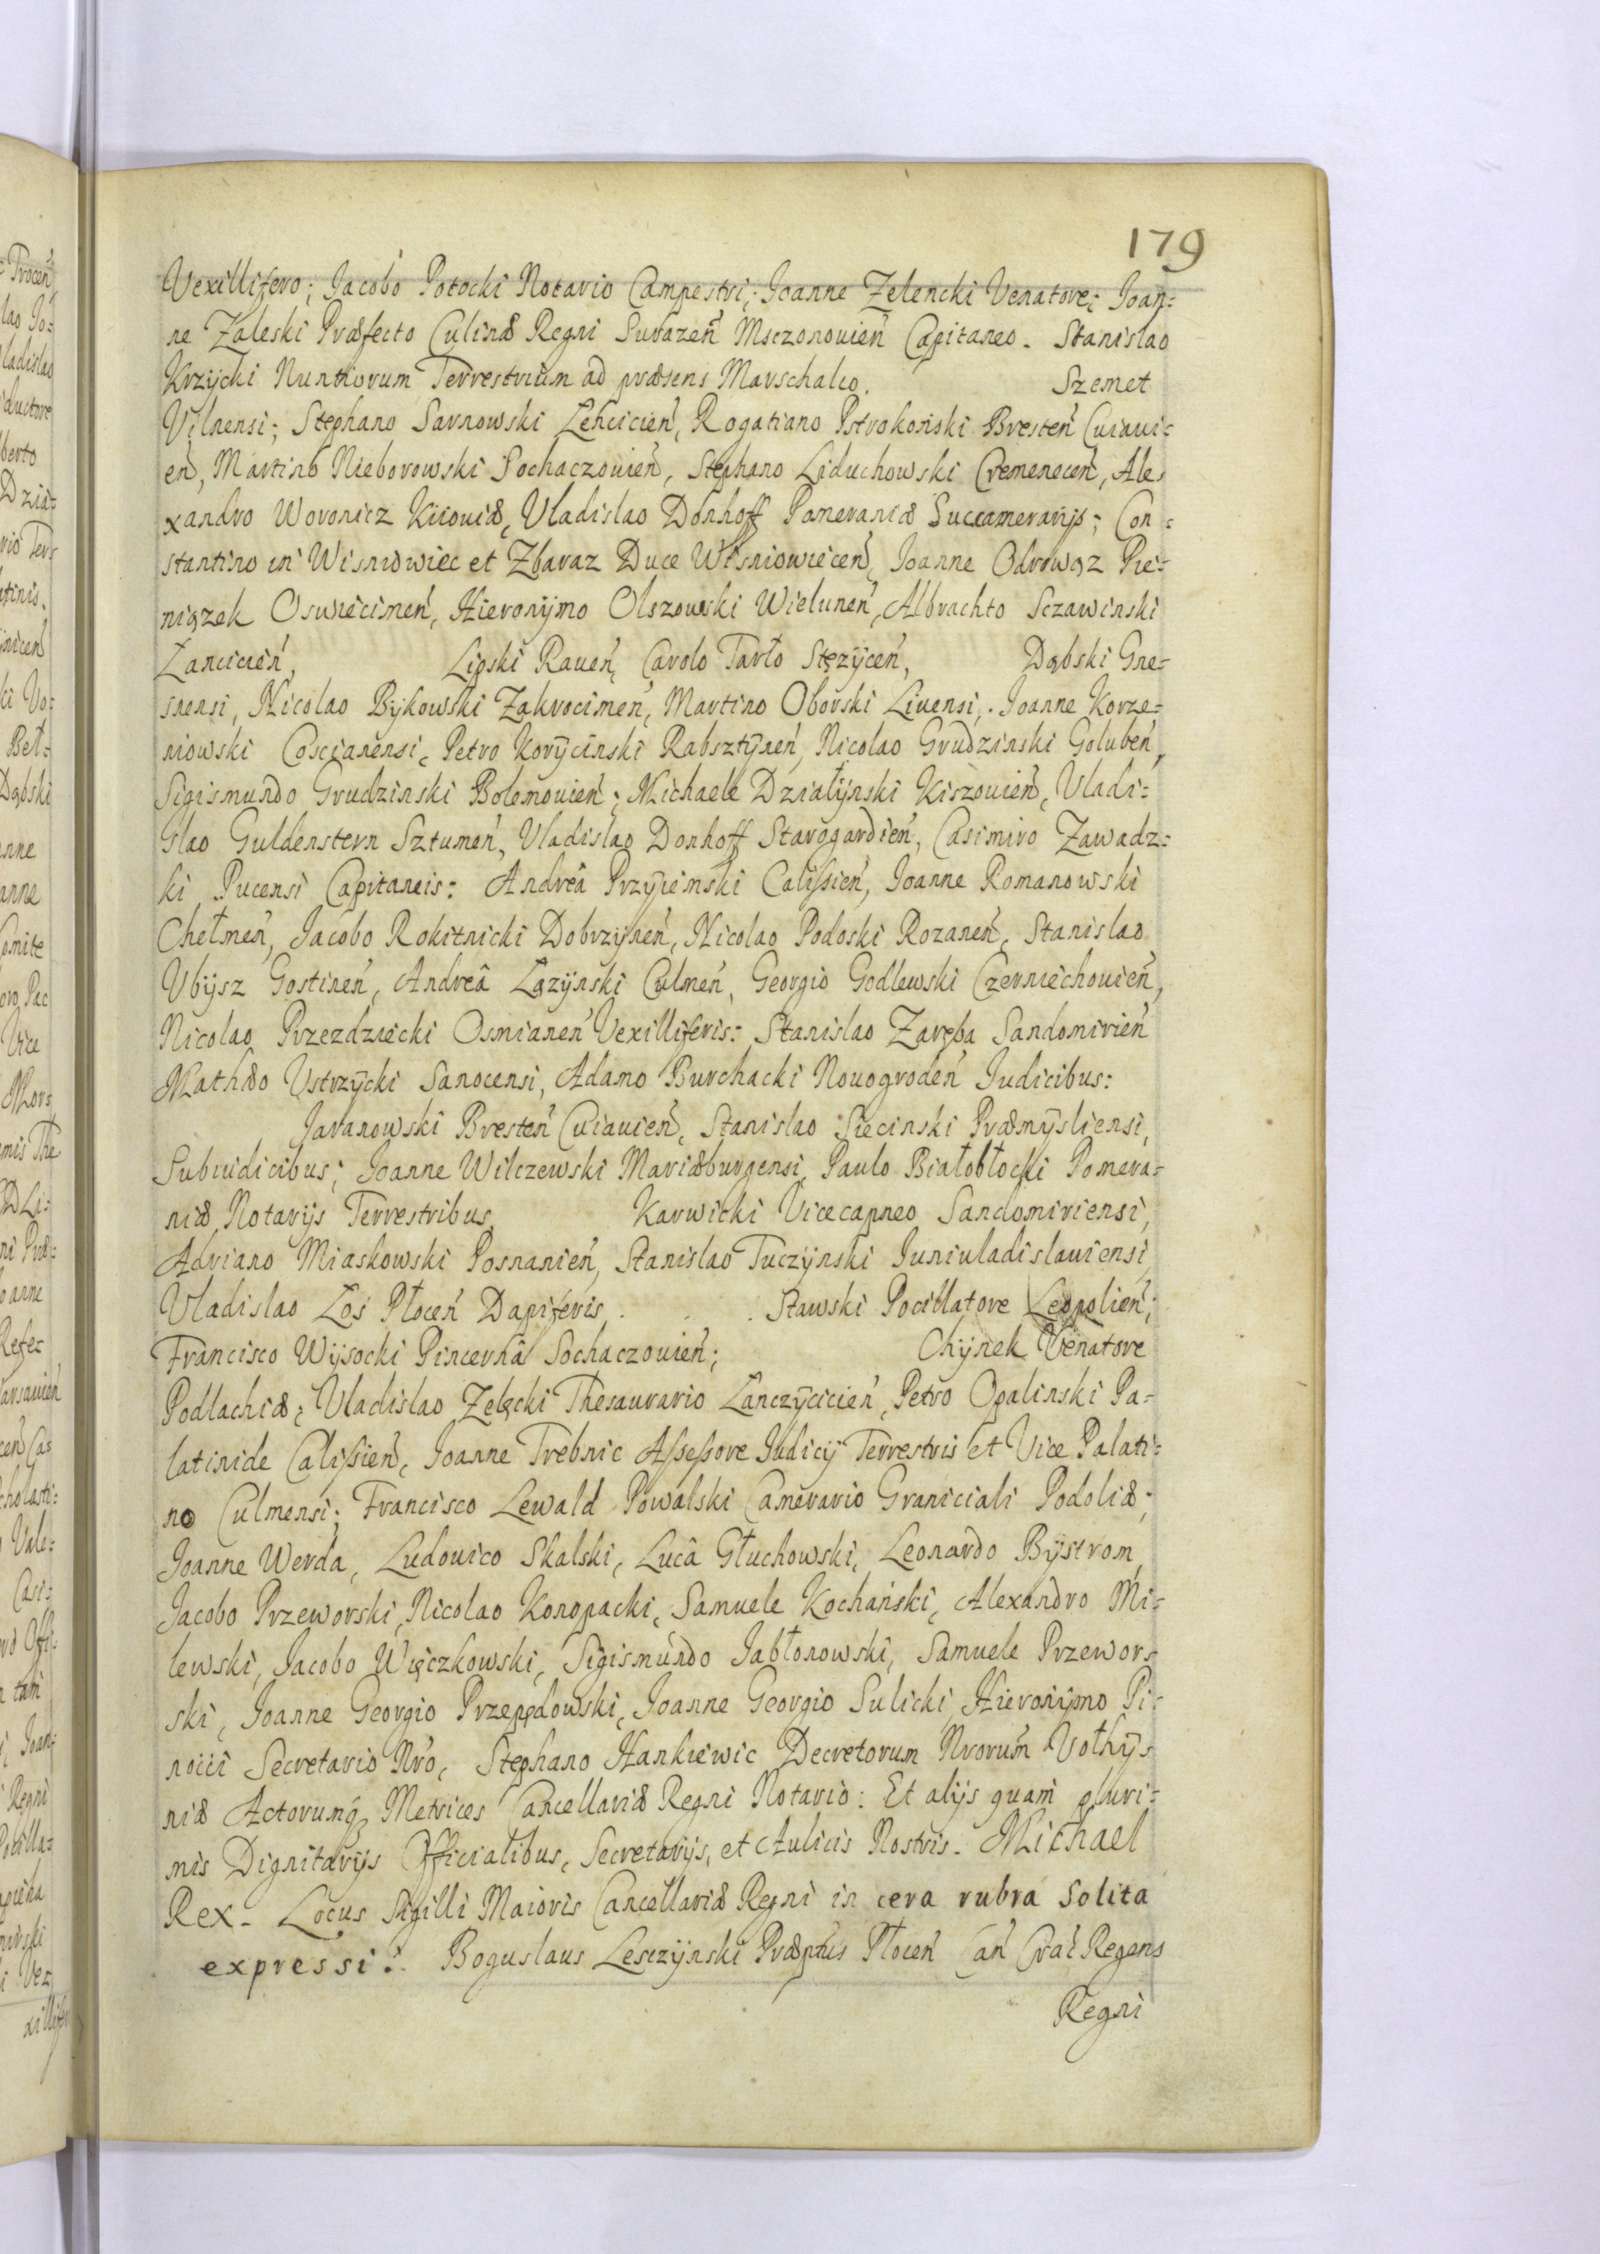 179
Vexillifero; Jacobo Potocki Notario Campestri; Joanne Zelencki Venatore; Joan-
ne Zaleski Præfecto Culinæ Regni Surazeń Msczonouień Capitaneo. Stanislao
Krzycki Nuntiorum Terrestrium ad præsens Marschalco. Szemet
Vilnensi; Stephano Sarnowski Lencicień, Rogatiano Pstrokoński Bresteń Cuiaui-
eń, Martino Nieborowski Sochaczouień, Stephano Liduchowski Cremeneceń, Ale-
xandro Woronicz Kiiouiæ, Vladislao Donhoff Pomeraniæ Succamerarijs; Con-
stantino in Wisniowiec et Zbaraz Duce Wisniowieceń, Joanne Odrowąz Pie-
niązek Osuiecimeń, Hieronymo Olszowski Wieluneń, Albrachto Sczawinski
Łancicień, Lipski Raueń, Carolo Tarło Stęzyceń, Dąbski Gne-
snensi, Nicolao Bykowski Zakrocimeń, Martino Oborski Liuensi, Joanne Korze-
niowski Coscianensi, Petro Korycinski Rabsztyneń, Nicolao Grudzinski Golubeń,
Sigismundo Grudzinski Bolemouień; Michaele Działynski Kiszouień, Vladi-
slao Guldenstern Sztumeń, Vladislao Donhoff Starogardień, Casimiro Zawadz-
ki Pucensi Capitaneis: Andreâ Przyiemski Calissień, Joanne Romanowski
Chełmeń, Jacobo Rokitnicki Dobrzyneń, Nicolao Podoski Rozaneń, Stanislao
Vbysz Gostineń, Andreâ Łązynski Culmeń, Georgio Godlewski Czerniechouień,
Nicolao Przezdziecki Osmianeń Vexilliferis: Stanislao Zaręba Sandomirień
Mathæo Vstrzycki Sanocensi, Adamo Burchacki Nouogrodeń Iudicibus:
Jaranowski Bresteń Cuiauień, Stanislao Siecinski Præmysliensi,
Subiudicibus; Joanne Wilczewski Mariæburgensi, Paulo Białobłocki Pomera-
niæ, Notarijs Terrestribus, Karwicki Vicecapneo Sandomiriensi,
Adriano Miaskowski Posnanień, Stanislao Tuczynski Iuniuladislauiensi,
Vladislao Łoś Płoceń Dapiferis, Stawski Pocillatore Leopolień;
Francisco Wysocki Pincernâ Sochaczouień; Chynek Venatore
Podlachiæ; Vladislao Zelęcki Thesaurario Łanczycicień, Petro Opalinski Pa-
latinide Calissień, Joanne Trebnic Assessore Iudicij Terrestris et Vice Palati-
no Culmensi; Francisco Lewald Powalski Camerario Graniciali Podoliæ;
Joanne Werda, Ludouico Skalski, Lucâ Głuchowski, Leonardo Bystrom,
Jacobo Przeworski, Nicolao Konopacki, Samuele Kochański, Alexandro Mi-
lewski, Jacobo Więczkowski, Sigismundo Jabłonowski, Samuele Przewors
ski, Joanne Georgio Przepędowski, Joanne Georgio Sulicki, Hieronymo Pi-
nocci Secretario Nro, Stephano Hankiewic Decretorum Nrorum Vołhyn-
niæ Actorumq Metrices Cancellariæ Regni Notario: Et alijs quam pluri-
mis Dignitarijs Officialibus, Secretarijs, et Aulicis Nostris. Michael
Rex. Locus Sigilli Maioris Cancellariæ Regni in cera rubra solita
expressi. Boguslaus Lesczynski Præptus Płoceń Cań Crał Regens
Regni